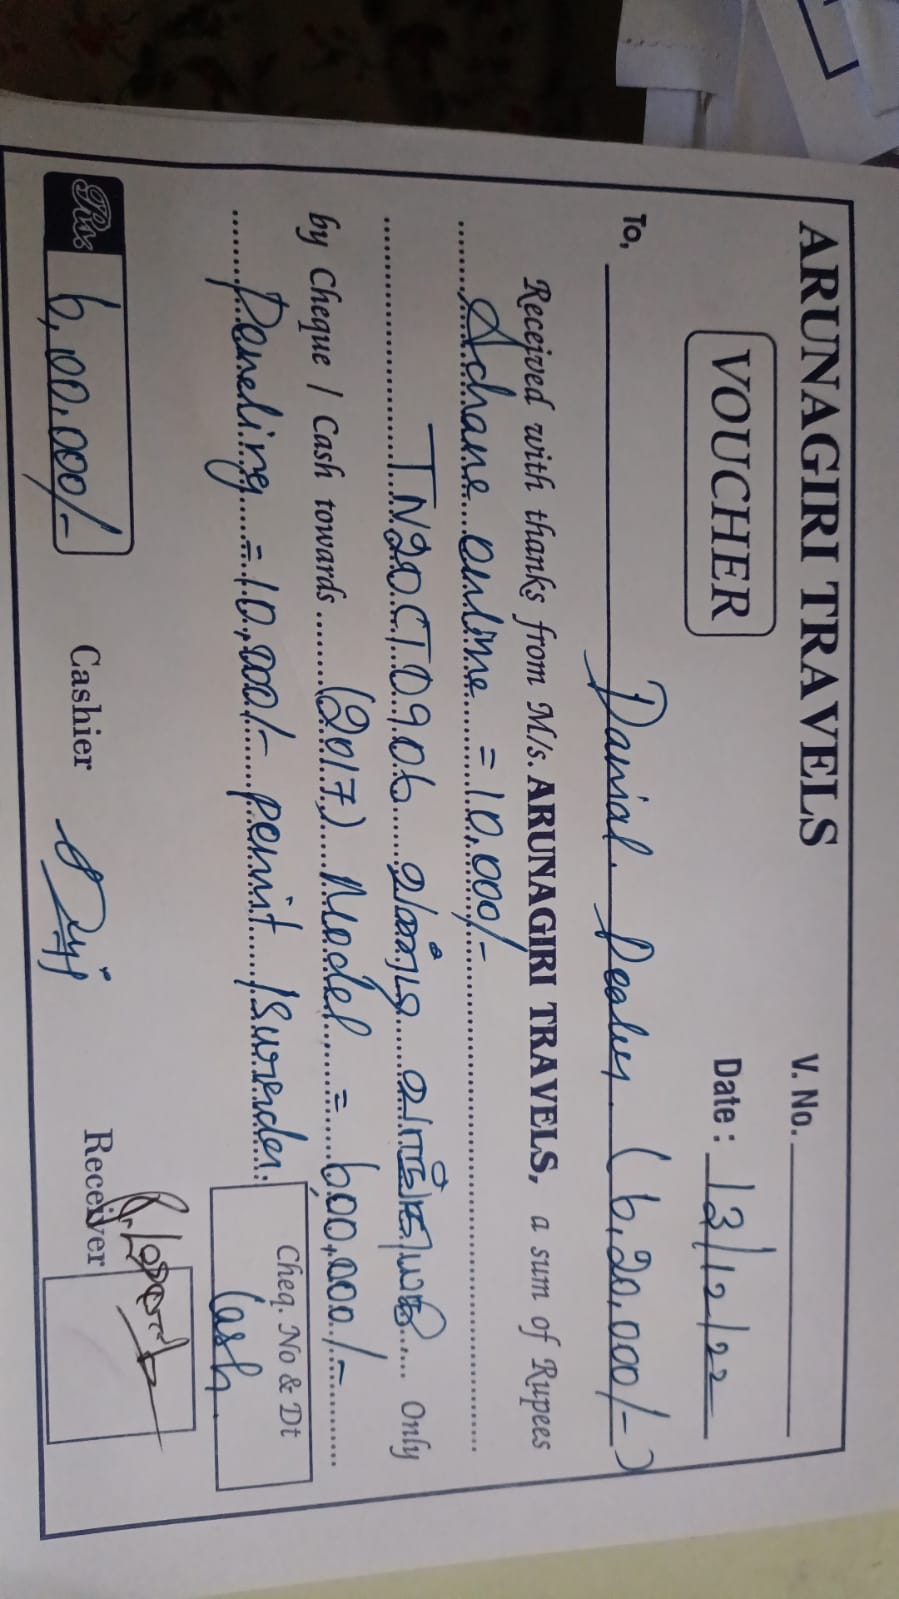 ARUNAGIRI TRAVELS
V. No.
VOUCHER
Date : 13/12/22
To, Danial. Dealer (6,20,000/-)
Received with thanks from M/s. ARUNAGIRI TRAVELS, a sum of Rupees
online = 10,000/-
TN20CT0906 வண்டி Only
by Cheque / Cash towards (2017) Model = 6,00,000/-
Pending = 10,000/- permit /Surender
Cheq. No & Dt
Cash
Rs. 6,00,000/-
Cashier
Receiver